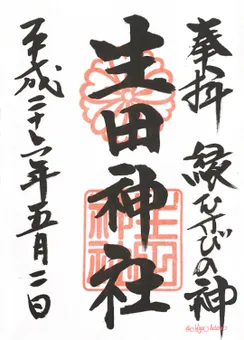 奉拝 縁むすびの神
生田神社
生田神社
平成二十六年五月二日